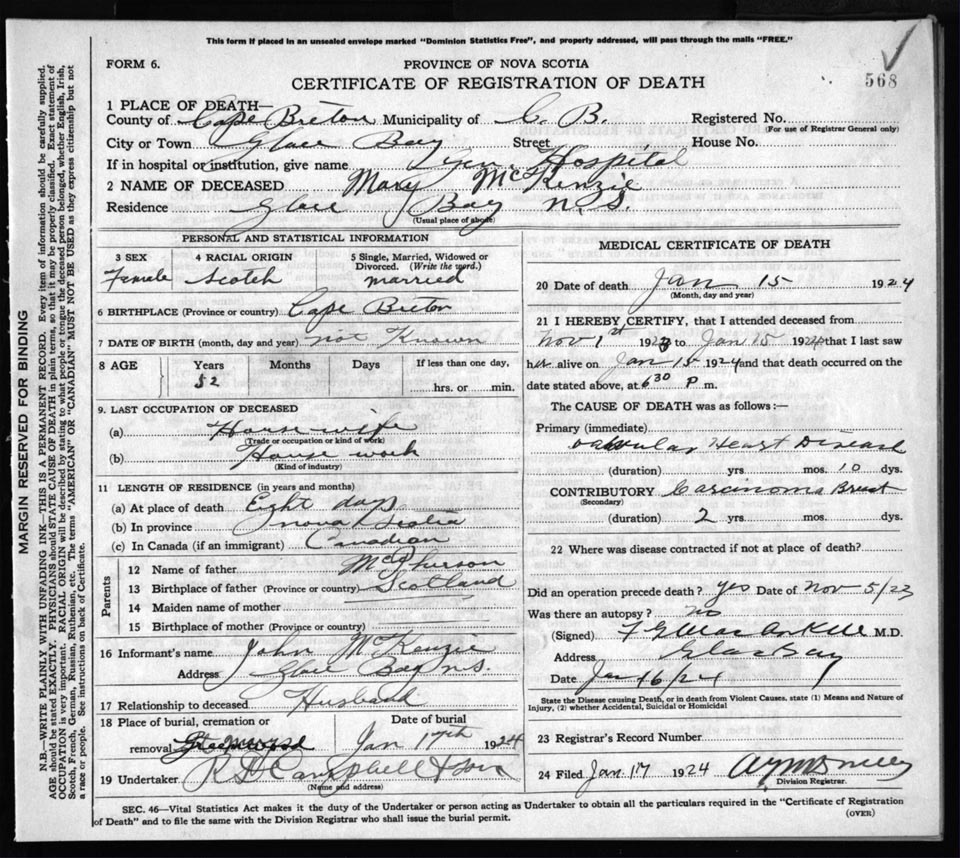 This form if placed in an unsealed envelope marked "Dominion Statistics Free", and properly addressed, will pass through the mails "FREE."
FORM 6.
PROVINCE OF NOVA SCOTIA
CERTIFICATE OF REGISTRATION OF DEATH
568
1 PLACE OF DEATH—
County of Cape Breton Municipality of C. B. Registered No.
(For use of Registrar General only)
City or Town Glace Bay Street House No.
If in hospital or institution, give name Hospital
2 NAME OF DECEASED Mary McKenzie
Residence Glace Bay N.S.
(Usual place of abode)
PERSONAL AND STATISTICAL INFORMATION
3 SEX 4 RACIAL ORIGIN 5 Single, Married, Widowed or Divorced. (Write the word.)
Female Scotch married
6 BIRTHPLACE (Province or country) Cape Breton
7 DATE OF BIRTH (month, day and year) not Known
8 AGE Years Months Days If less than one day,
52 hrs. or min.
9. LAST OCCUPATION OF DECEASED
(a) House wife
(Trade or occupation or kind of work)
(b) House work
(Kind of industry)
11 LENGTH OF RESIDENCE (in years and months)
(a) At place of death Eight days
(b) In province nova Scotia
(c) In Canada (if an immigrant) Canadian
Parents
12 Name of father McPherson
13 Birthplace of father (Province or country) Scotland
14 Maiden name of mother
15 Birthplace of mother (Province or country)
16 Informant's name John McKenzie
Address Glace Bay N.S.
17 Relationship to deceased Husband
18 Place of burial, cremation or removal Date of burial
Jan 17th 1924
19 Undertaker Campbell & Son
(Name and address)
MEDICAL CERTIFICATE OF DEATH
20 Date of death Jan 15 1924
(Month, day and year)
21 I HEREBY CERTIFY, that I attended deceased from
Nov 1st 1923 to Jan 15 1924 that I last saw
her alive on Jan 15 1924 and that death occurred on
date stated above, at 6 30 P m.
The CAUSE OF DEATH was as follows:—
Primary (immediate)
Valvular Heart Disease
(duration) yrs. mos. 10 dys.
CONTRIBUTORY Carcinoma Breast
(Secondary)
(duration) 2 yrs. mos. dys.
22 Where was disease contracted if not at place of death?
Did an operation precede death? yes Date of Nov 5/23
Was there an autopsy? no
(Signed) M.D.
Address Glace Bay
Date Jan 16/24
State the Disease causing Death, or in death from Violent Causes, state (1) Means and Nature of
Injury, (2) whether Accidental, Suicidal or Homicidal
23 Registrar's Record Number
24 Filed Jan. 17 1924
Division Registrar.
SEC. 46—Vital Statistics Act makes it the duty of the Undertaker or person acting as Undertaker to obtain all the particulars required in the "Certificate of Registration
of Death" and to file the same with the Division Registrar who shall issue the burial permit.
(OVER)
MARGIN RESERVED FOR BINDING
N.B.—WRITE PLAINLY WITH UNFADING INK—THIS IS A PERMANENT RECORD. Every item of information should be carefully supplied.
AGE should be stated EXACTLY. PHYSICIANS should STATE CAUSE OF DEATH in plain terms, so that it may be properly classified. Exact statement of
OCCUPATION is very important. RACIAL ORIGIN will be described by stating to what people or tongue the deceased person belonged, whether English, Irish,
Scotch, French, German, Russian, Ruthenian, etc. The terms "AMERICAN" or "CANADIAN" MUST NOT BE USED as they express citizenship but not
a race or people. See instructions on back of Certificate.